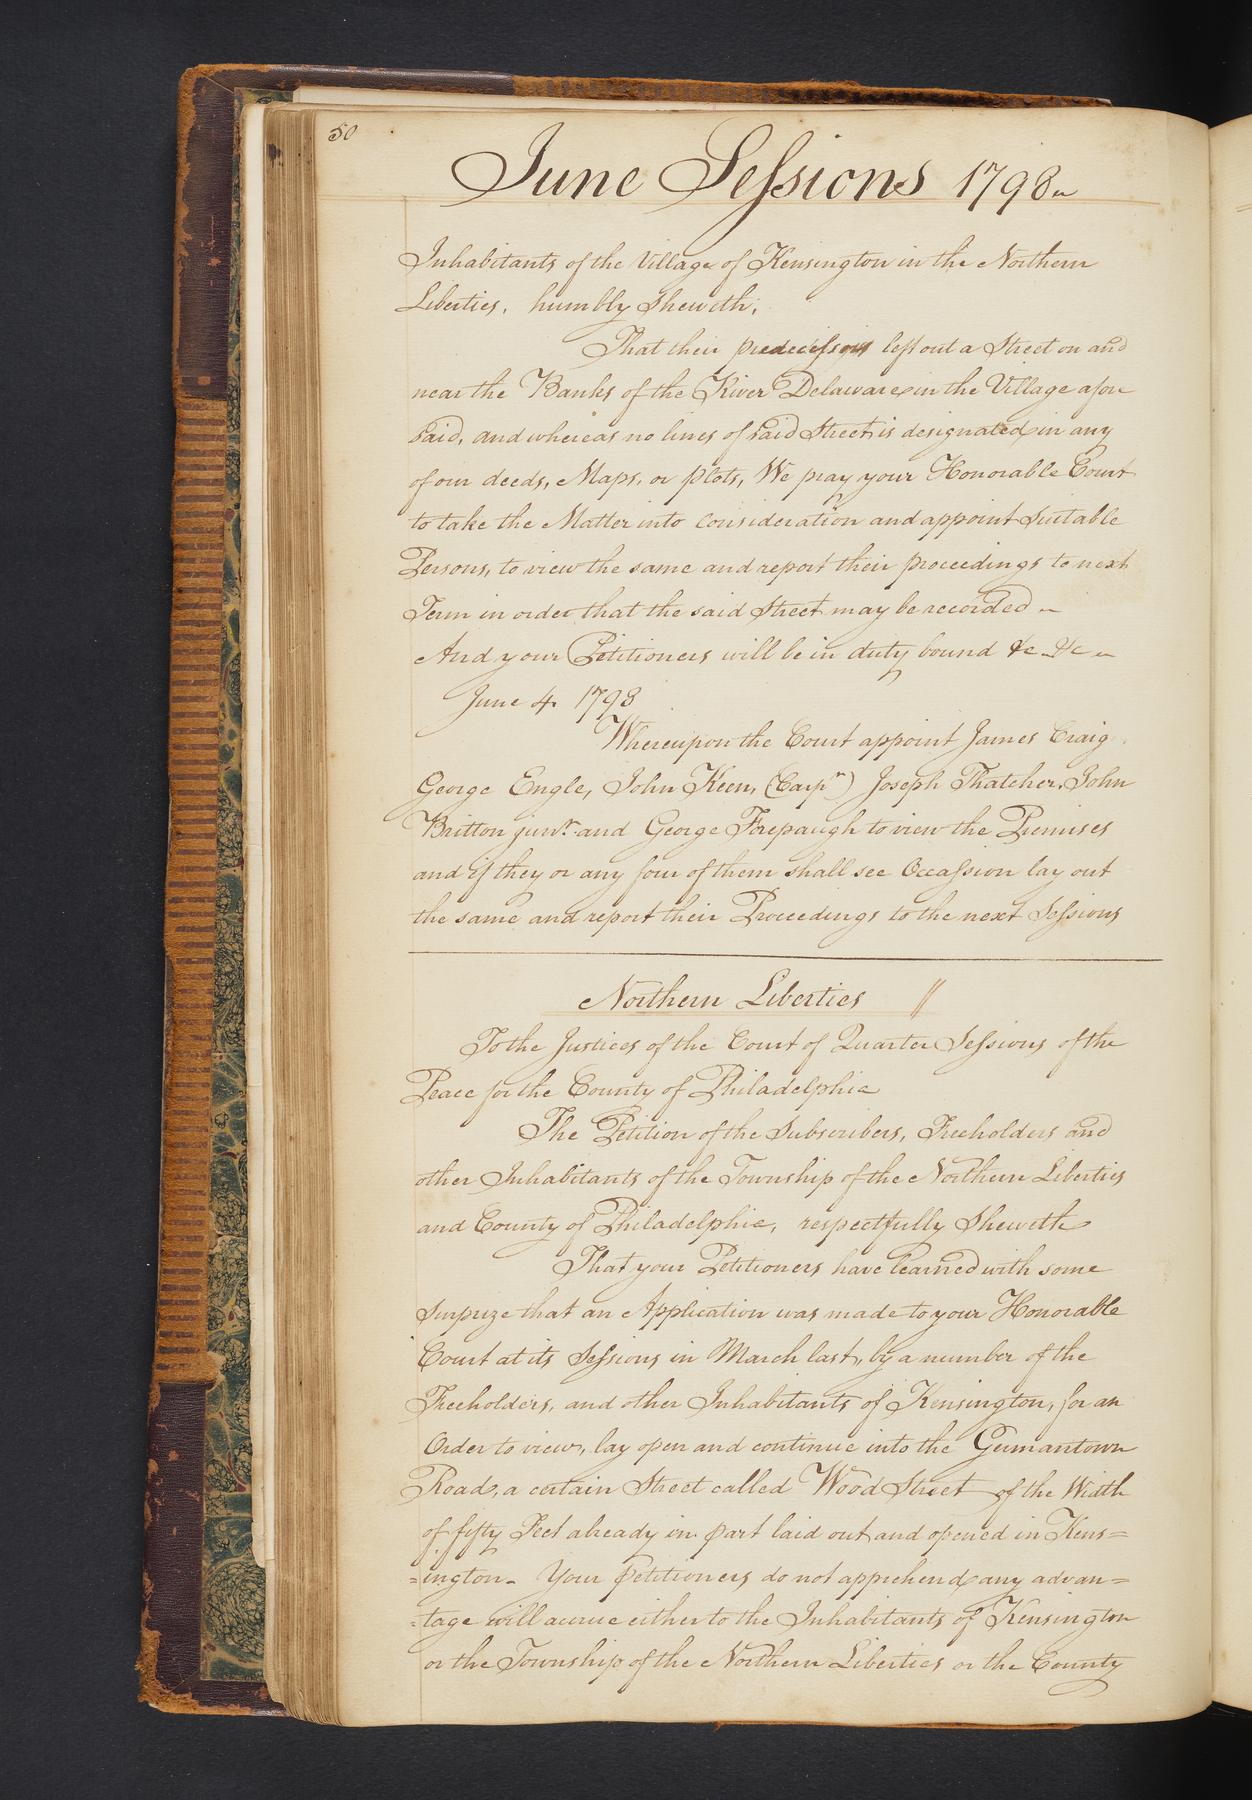 50
June Sessions 1798
Inhabitants of the Village of Kensington in the Northern
Liberties, humbly Sheweth;
That their predecessors left out a Street on and
near the Banks of the River Delaware in the Village afore
said, and whereas no lines of said Street is designated in any
of our deeds, Maps, or plots, We pray your Honorable Court
to take the Matter into Consideration and appoint Suitable
Persons, to view the same and report their proceedings to next
Term in order that the said Street may be recorded
And your Petitioners will be in duty bound &c &c
June 4 1798
Whereupon the Court appoint James Craig
George Engle, John Keen, (Carpr) Joseph Thatcher, John
Britton junr. and George Forepaugh to view the Premises
and if they or any four of them shall see Occassion lay out
the same and report their Proceedings to the next Sessions
Northern Liberties //
To the Justices of the Court of Quarter Sessions of the
Peace for the County of Philadelphia
The Petition of the Subscribers, Freeholders and
other Inhabitants of the Township of the Northern Liberties
and County of Philadelphia, respectfully Sheweth
That your Petitioners have learned with some
Surprize that an Application was made to your Honorable
Court at its Sessions in March last, by a number of the
Freeholders, and other Inhabitants of Kensington, for an
Order to view, lay open and continue into the Germantown
Road, a certain Street called Wood Street of the Width
of fifty Feet already in part laid out and opened in Kens=
=ington - Your Petitioners do not apprehend any advan=
=tage will accrue either to the Inhabitants of Kensington
or the Township of the Northern Liberties or the County